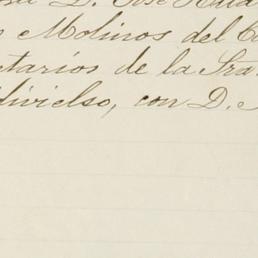 D. José
Molinos del
etarios de la Sra
divielso, con D.